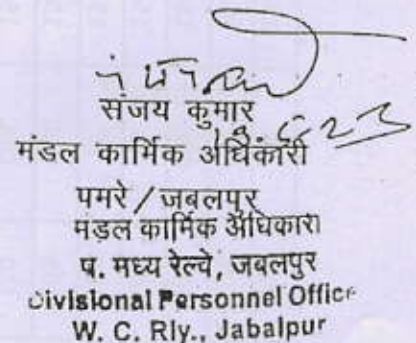 संजय कुमार
मंडल कार्मिक अधिकारी
पमरे / जबलपुर
मंडल कार्मिक अधिकारी
प. मध्य रेल्वे, जबलपुर
Divisional Personnel Office
W. C. Rly., Jabalpur